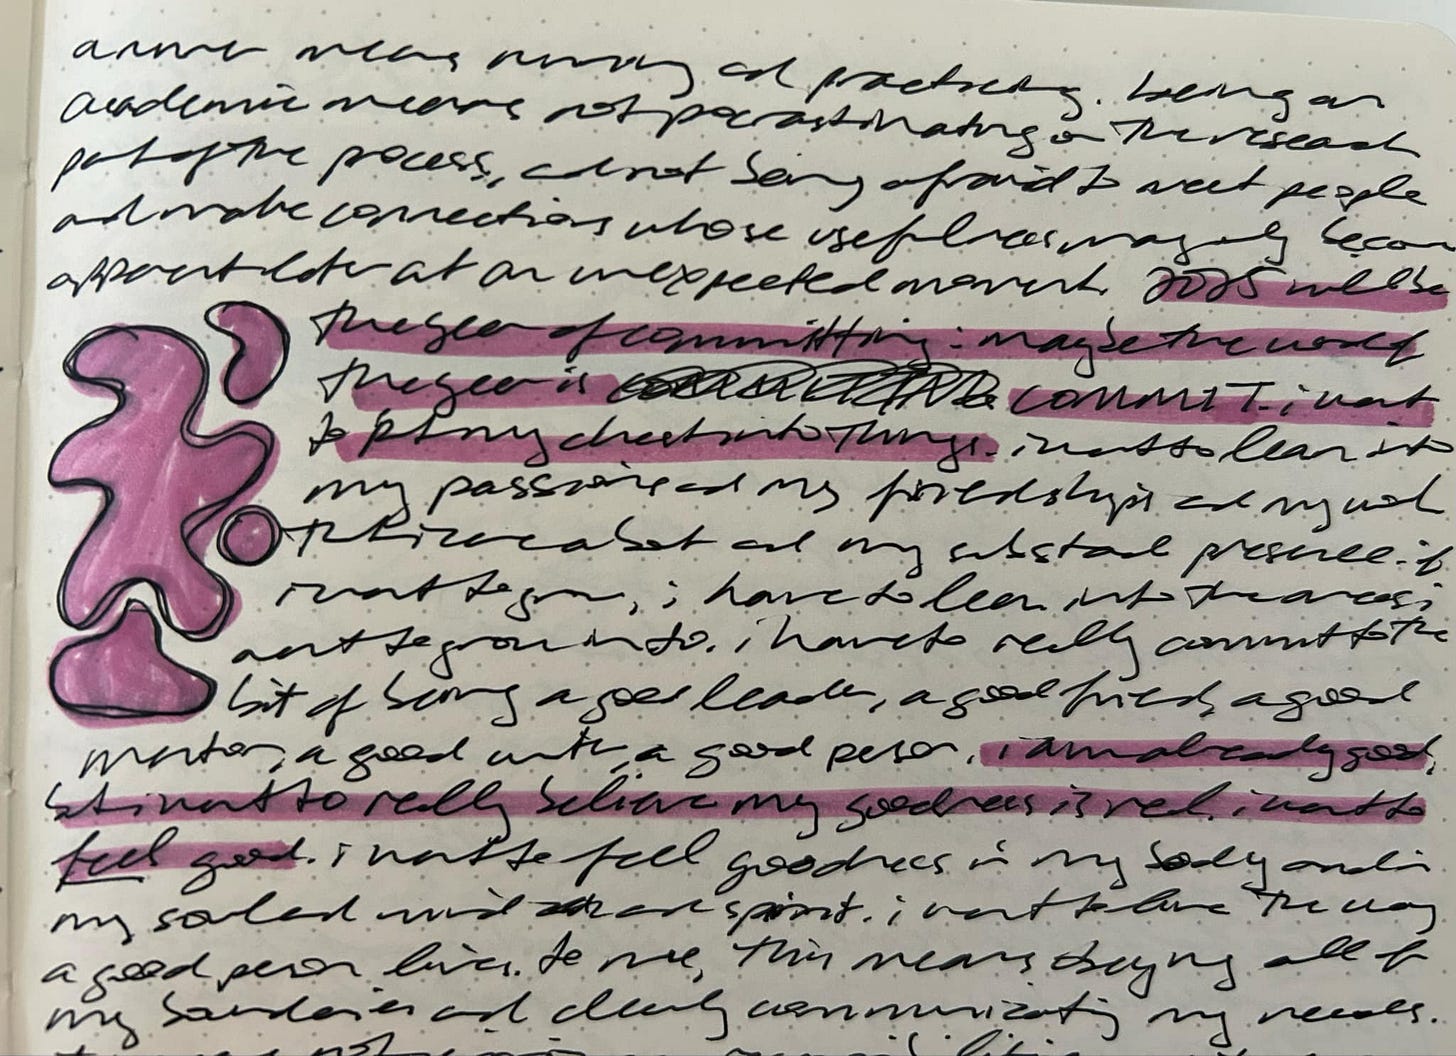 a runner means running and practicing. being an
academic means not procrastinating on the research
part of the process, and not being afraid to meet people
and make connections whose usefulness may only become
apparent later at an unexpected moment. 2025 will be
the year of committing. maybe the word of
the year is COMMIT. i want
to put my chest into things. i want to lean into
my passions and my friendships and my work
that i care about and my substack presence. if
i want to grow, i have to lean into the areas i
want to grow into. i have to really commit to the
bit of being a good leader, a good friend, a good
mentor, a good writer, a good person. i am already good,
but i want to really believe my goodness is real. i want to
feel good. i want to feel goodness in my body and in
my soul and mind and spirit. i want to live the way
a good person lives. to me, this means obeying all of
my boundaries and clearly communicating my needs.